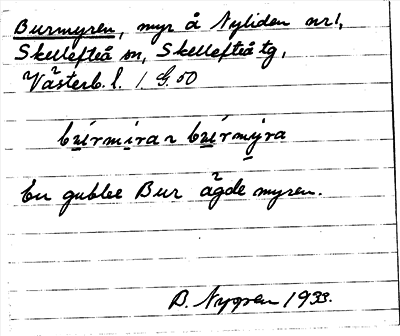 Burmyren, myr å Nyliden nr 1,
Skellefteå sn, Skellefteå tg,
Västerb. l. 1 G. 50
En gubbe Bur ägde myren.
B. Nygren 1933.